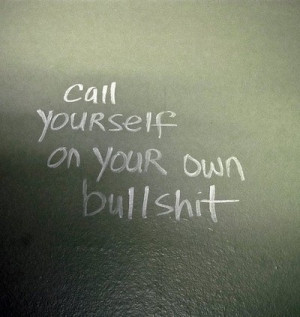 call
yourself
on your own
bullshit